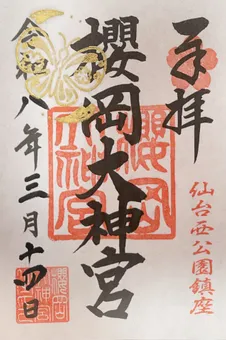 奉拝
仙台西公園鎮座
櫻岡大神宮
令和八年三月十四日
櫻岡大神宮